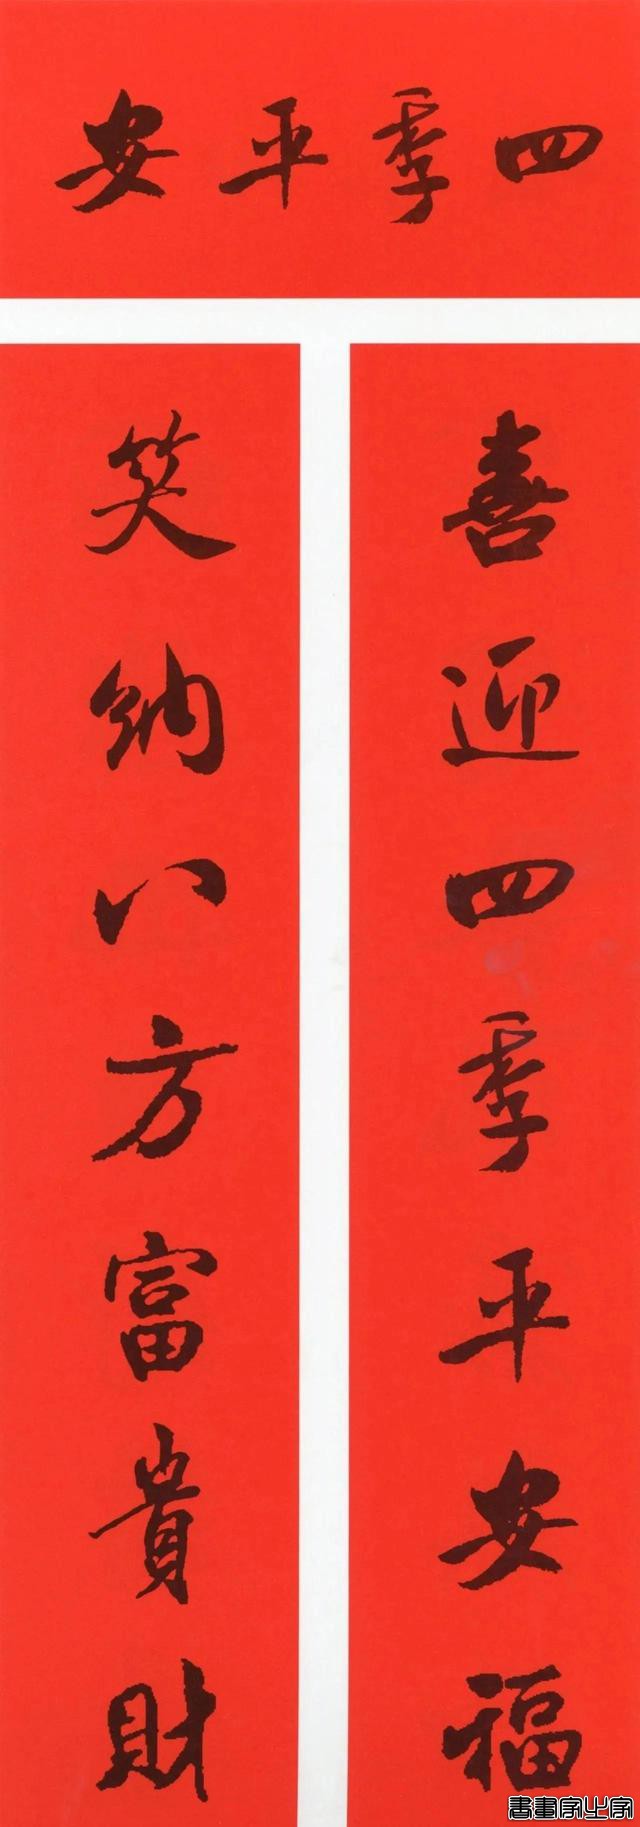 四季平安
喜迎四季平安福
笑纳八方富貴財
書畫家之家